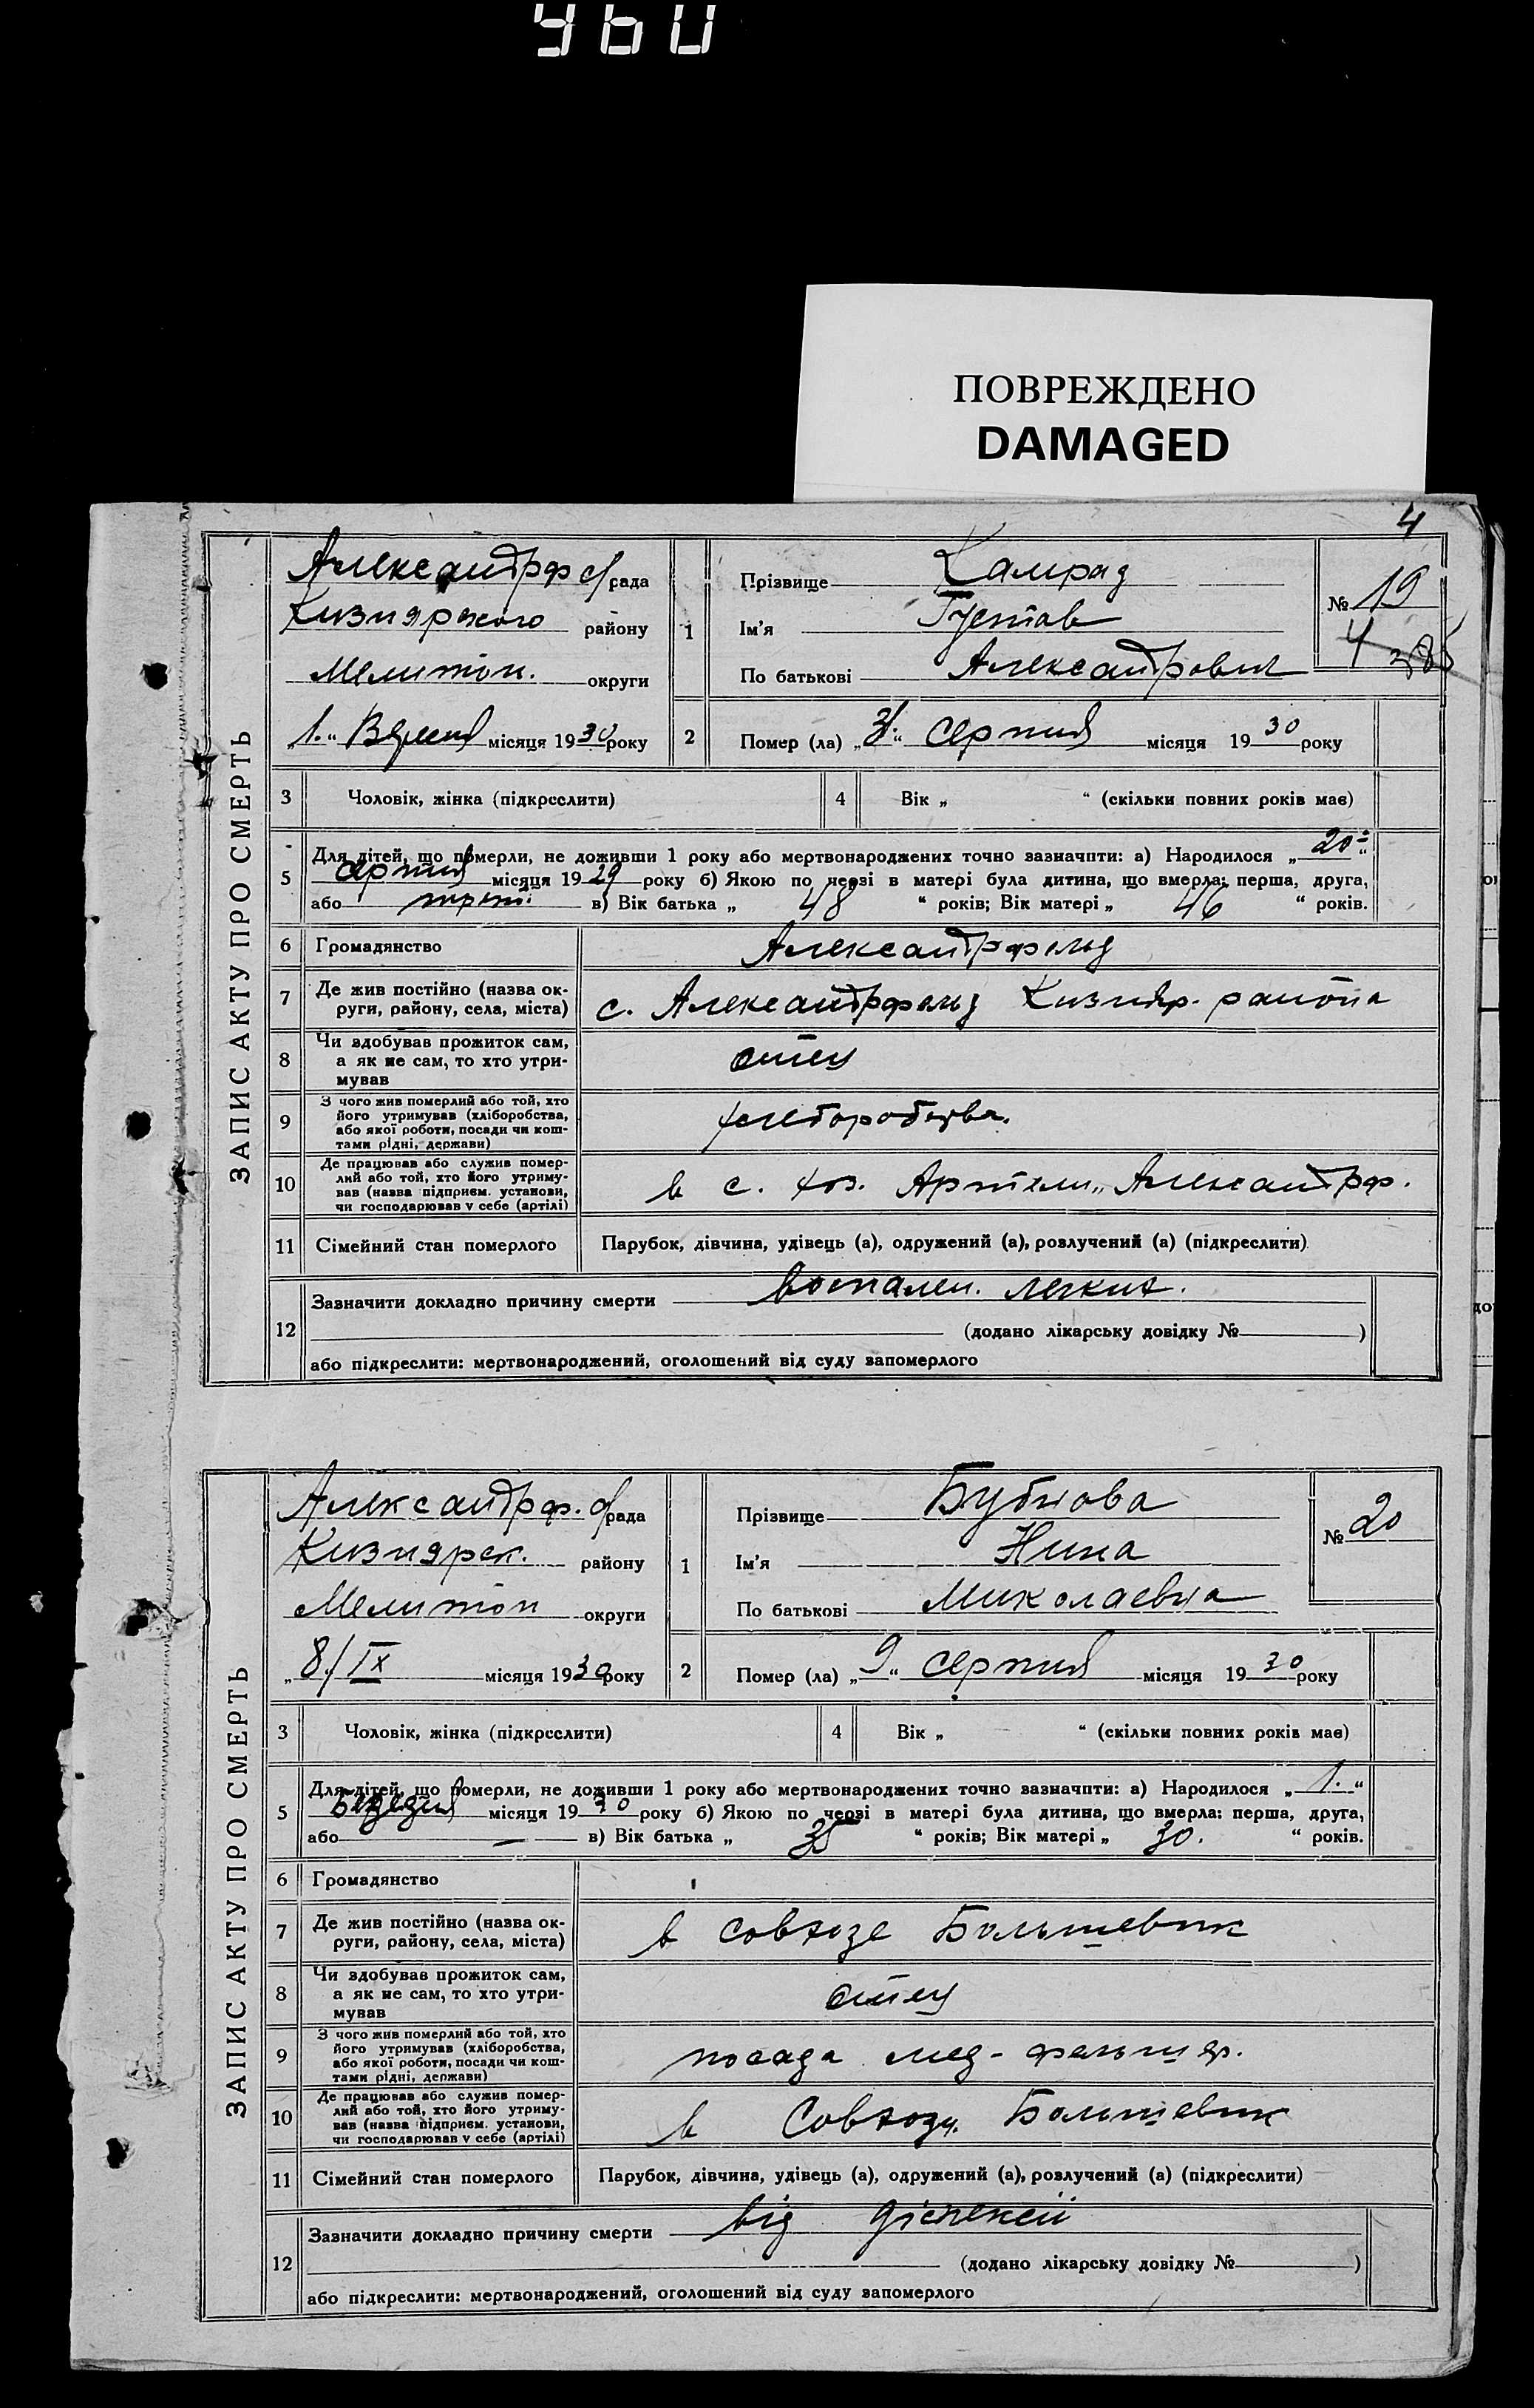 460
ПОВРЕЖДЕНО
DAMAGED
4
ЗАПИС АКТУ ПРО СМЕРТЬ
Александрф с/рада
Кизиярского району
Мелитоп. округи
„1.“ Вересня місяця 1930 року
1 Прізвище Камрад
Ім'я Густав
По батькові Александрович
№ 19
4
2 Помер (ла) „31“ серпня місяця 1930 року
3 Чоловік, жінка (підкреслити) 4 Вік „ “ (скільки повних років має)
5 Для дітей, що померли, не доживши 1 року або мертвонароджених точно зазначити: а) Народилося „20“
серпня місяця 1929 року б) Якою по черзі в матері була дитина, що вмерла: перша, друга,
або в) Вік батька „ 48 “ років; Вік матері „ 46 “ років.
6 Громадянство Александрфельд
7 Де жив постійно (назва ок-
руги, району, села, міста) с. Александрфельд Кизияр. района
8 Чи здобував прожиток сам,
а як не сам, то хто утри-
мував отец
9 З чого жив померлий або той, хто
його утримував (хліборобства,
або якої роботи, посади чи кош-
тами рідні, держави) хлеборобства.
10 Де працював або служив помер-
лий або той, хто його утриму-
вав (назва підприєм. установи,
чи господарював у себе (артілі) в с. хоз. Артели „Александрф.
11 Сімейний стан померлого Парубок, дівчина, удівець (а), одружений (а), розлучений (а) (підкреслити)
12 Зазначити докладно причину смерти воспален. легких.
(додано лікарську довідку № )
або підкреслити: мертвонароджений, оголошений від суду запомерлого
ЗАПИС АКТУ ПРО СМЕРТЬ
Александрф. с/рада
Кизиярск. району
Мелитоп округи
„8/IX місяця 1930 року
1 Прізвище Бубнова
Ім'я Нина
По батькові Миколаевна
№ 20
2 Помер (ла) „9“ серпня місяця 1930 року
3 Чоловік, жінка (підкреслити) 4 Вік „ “ (скільки повних років має)
5 Для дітей, що померли, не доживши 1 року або мертвонароджених точно зазначити: а) Народилося „1.“
місяця 1930 року б) Якою по черзі в матері була дитина, що вмерла: перша, друга,
або — в) Вік батька „ 35 “ років; Вік матері „ 30. “ років.
6 Громадянство
7 Де жив постійно (назва ок-
руги, району, села, міста) в совхозе Большевик
8 Чи здобував прожиток сам,
а як не сам, то хто утри-
мував отец
9 З чого жив померлий або той, хто
його утримував (хліборобства,
або якої роботи, посади чи кош-
тами рідні, держави) посада мед-фельшер.
10 Де працював або служив помер-
лий або той, хто його утриму-
вав (назва підприєм. установи,
чи господарював у себе (артілі) в Совхозі. Большевик
11 Сімейний стан померлого Парубок, дівчина, удівець (а), одружений (а), розлучений (а) (підкреслити)
12 Зазначити докладно причину смерти від діспексії
(додано лікарську довідку № )
або підкреслити: мертвонароджений, оголошений від суду запомерлого